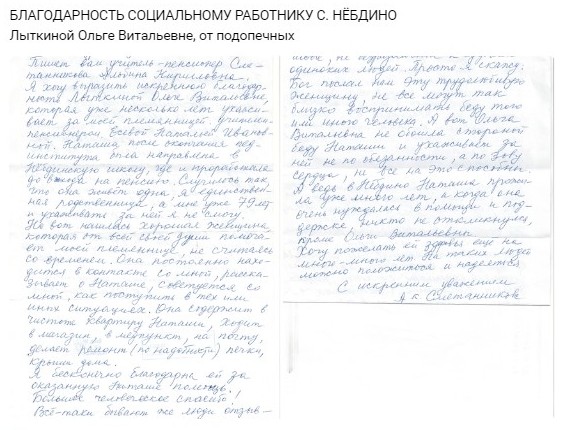 БЛАГОДАРНОСТЬ СОЦИАЛЬНОМУ РАБОТНИКУ С. НЁБДИНО
Лыткиной Ольге Витальевне, от подопечных
Пишет вам учитель-пенсионер
Альбина Кирилловна.
Я хочу выразить искреннюю благодар-
ность Лыткиной Ольге Витальевне,
которая уже несколько лет ухажи-
вает за моей племянницей, учителем-
пенсионеркой Евсевой Натальей Иванов-
ной. Наташа, после окончания пед-
института была направлена в
Нёбдинскую школу, где и проработала
до выхода на пенсию. Случилось так,
что она живёт одна. Я единствен-
ная родственница, а мне уже 79 лет
и ухаживать за ней я не смогу.
Но вот нашлась хорошая женщина,
которая от всей своей души помога-
ет моей племяннице, не считаясь
со временем. Она постоянно нахо-
дится в контакте со мной, расска-
зывает о Наташе, советуется со
мной, как поступить в тех или
иных ситуациях. Она содержит в
чистоте квартиру Наташи, ходит
в магазин, в медпункт, на почту,
делает ремонт (по надобности) печки,
крыши дома.
Я бесконечно благодарна ей за
оказанную Наташе помощь.
Большое человеческое спасибо!
Всё-таки бывают же люди отзыв-
одиноких людей. Просто я скажу:
Бог послал нам эту трудолюбивую
женщину. Не все могут так
близко воспринимать беду того
или иного человека. А вот Ольга
Витальевна не обошла стороной
беду Наташи и ухаживает за
ней не по обязанности, а по зову
сердца, не все на это способны.
А ведь в Нёбдино Наташа прожи-
ла уже много лет, а когда она
очень нуждалась в помощи и под-
держке, никто не откликнулся,
кроме Ольги Витальевны.
Хочу пожелать ей здоровья ещё на
много-много лет. На таких людей
можно положиться и надеяться
С искренним уважением
А.К.